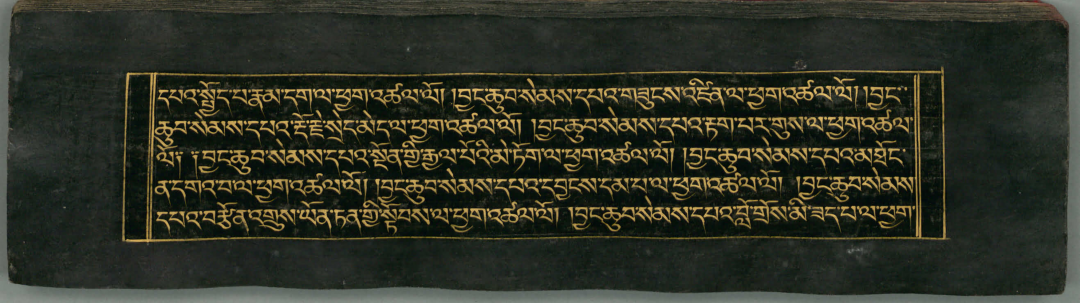 དཔའ་སྤྱོད་པ་རྣམ་དག་ལ་ཕྱག་འཚལ་ལོ། །བྱང་ཆུབ་སེམས་དཔའ་གཟུངས་འཛིན་ལ་ཕྱག་འཚལ་ལོ། །བྱང་
ཆུབ་སེམས་དཔའ་རྡོ་རྗེ་སེང་མེད་ལ་ཕྱག་འཚལ་ལོ། །བྱང་ཆུབ་སེམས་དཔའ་རྟག་པར་གུས་ལ་ཕྱག་འཚལ་
ལོ། །བྱང་ཆུབ་སེམས་དཔའ་སྔོན་གྱི་རྒྱལ་པོའི་མེ་ཏོག་ལ་ཕྱག་འཚལ་ལོ། །བྱང་ཆུབ་སེམས་དཔའ་མཐོང་
ན་དགའ་བ་ལ་ཕྱག་འཚལ་ལོ། །བྱང་ཆུབ་སེམས་དཔའ་དབྱངས་དམ་པ་ལ་ཕྱག་འཚལ་ལོ། །བྱང་ཆུབ་སེམས
དཔའ་བརྩོན་འགྲུས་ཡོན་ཏན་གྱི་སྟོབས་ལ་ཕྱག་འཚལ་ལོ། །བྱང་ཆུབ་སེམས་དཔའ་བློ་གྲོས་མི་ཟད་པ་ལ་ཕྱག་